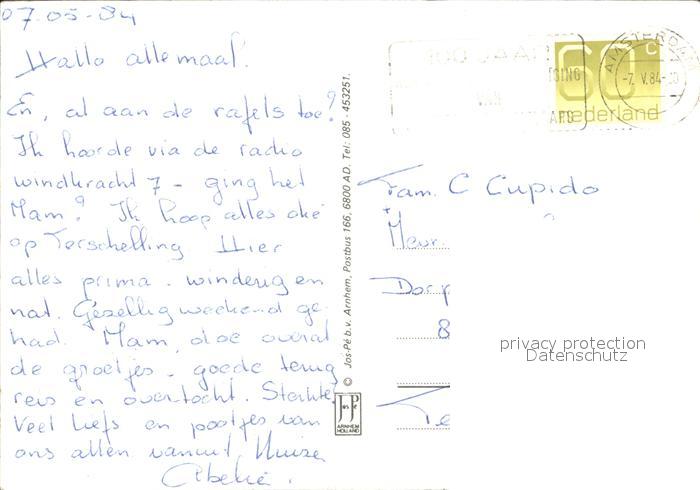 07-05-84
Hallo allemaal.
En, al aan de rafels toe?
Ik hoorde via de radio
windkracht 7 - ging het
Mam? Ik hoop alles oké
op Terschelling Hier
alles prima. winderig en
nat. Gezellig weekend ge-
had. Mam, doe overal
de groetjes. goede terug
reis en overtocht. Sterkte,
Veel liefs en pootjes van
ons allen vanuit Huize
© Jos-Pé b.v. Arnhem, Postbus 166, 6800 AD, Tel: 085 - 453251.
JosPé
ARNHEM
HOLLAND
100 JAAR
VAN
60 c
nederland
AMSTERDAM
-7. V.84-
Fam. C Cupido
+ Mevr.
Dorp
8
Te
privacy protection
Datenschutz